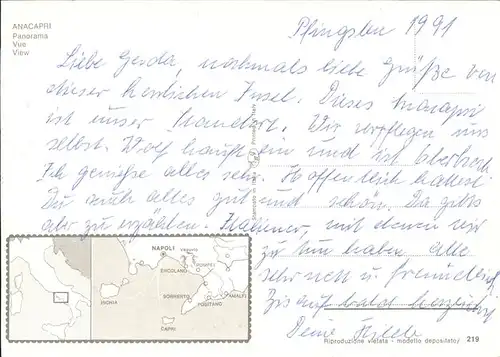 ANACAPRI
Panorama
Vue
View
Pfingsten 1991
Liebe Gerda, nochmals liebe Grüße von
dieser herrlichen Insel. Dieses Anacapri
ist unser Standort. Wir verpflegen uns
selbst. Wolf kauft ein und ist
Ich genieße alles sehr. Hoffentlich hattest
Du auch alles gut und schön. Da gibts
aber zu erzählen. Italiener, mit denen wir
zu tun haben alle
sehr nett u. freundlich
Bis auf bald herzlichst
Deine
NAPOLI
VESUVIO
ERCOLANO
POMPEI
ISCHIA
SORRENTO
AMALFI
POSITANO
CAPRI
Riproduzione vietata - modello depositato 219